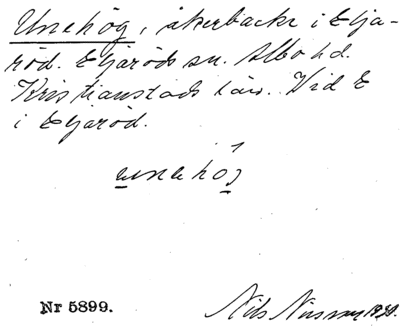 Unehög, åkerbacke i Elja-
röd. Eljaröds sn. Albo hd.
Kristianstads län. Vid E
i Eljaröd.
unehög
Nr 5899.
Nils